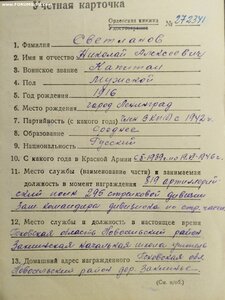 Учетная карточка
Орденская книжка
Удостоверение № 272341
1. Фамилия Светланов
2. Имя и отчество Николай Алексеевич
3. Воинское звание Капитан
4. Пол Мужской
5. Год рождения 1916
6. Место рождения город Ленинград
7. Партийность (с какого года) член ВКП(б) с 1942 г.
8. Образование Среднее
9. Национальность Русский
10. С какого года в Красной Армии
11. Место службы (наименование части) и занимаемая
должность в момент награждения 819 артиллерий
ский полк 295 стрелковой дивизии
Зам. командира дивизиона по стр. части
12. Место службы и должность в настоящее время
Псковская область Новосельский район
начальная школа учитель
13. Домашний адрес награжденного Псковская обл.
Новосельский район дер.
(См. н/об.)